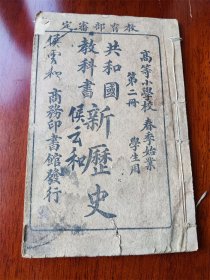 教育部審定
高等小學校 春季始業
第二冊 學生用
共和國
教科書
新歷史
侯云和
侯雲和
商務印書館發行